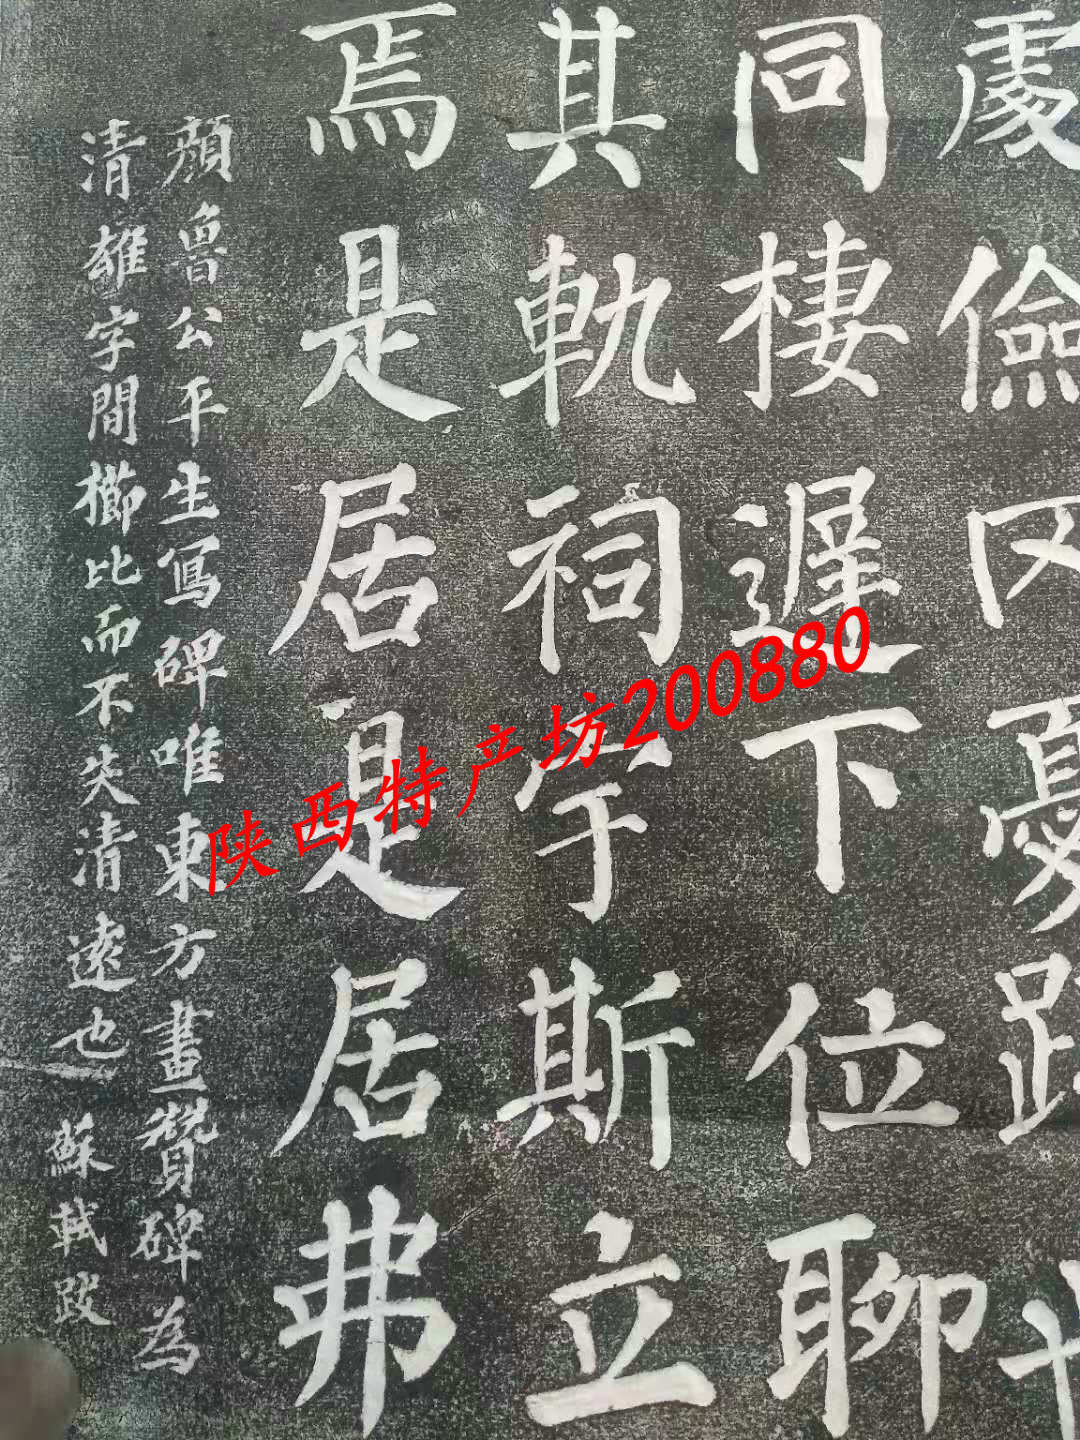 處儉罔憂跡
同棲遲下位聊
其軌祠宇斯立
焉是居是居弗
顏魯公平生寫碑唯東方畫贊碑為
清雄字間櫛比而不失清遠也蘇軾跋
陕西特产坊200880